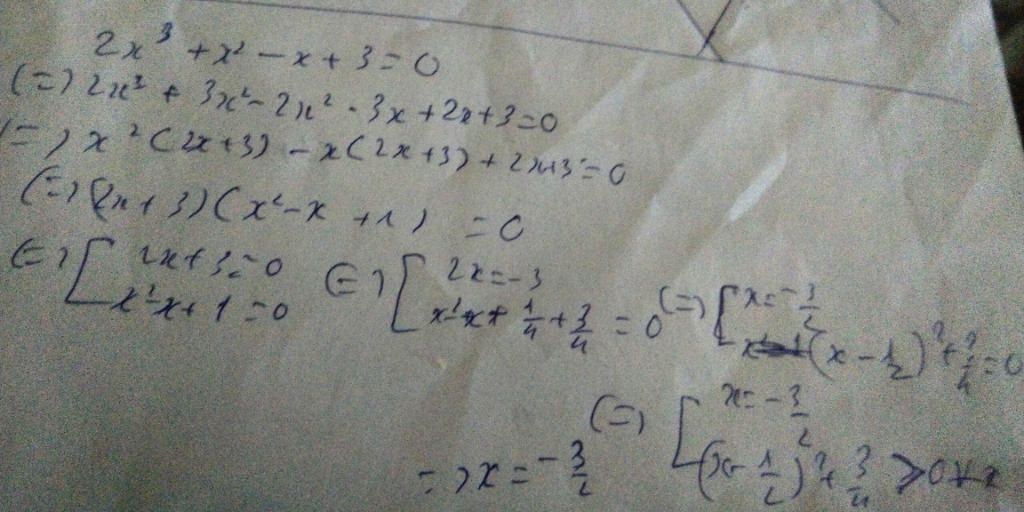 2x³ + x² - x + 3 = 0
(=) 2x³ + 3x² - 2x² - 3x + 2x + 3 = 0
(=) x²(2x+3) - x(2x+3) + 2x+3 = 0
(=) (2x+3)(x² - x + 1) = 0
(=) [ 2x+3=0 (=) [ 2x=-3 (=) [ x=-3/2
x²-x+1=0 x²-x+1/4+3/4=0 (x-1/2)²+3/4=0
(=) [ x=-3/2
=) x=-3/2 (x-1/2)²+3/4 >0 ∀x